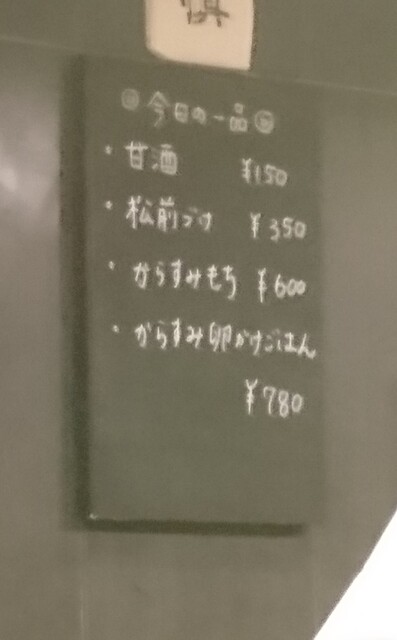 ◎今日の一品◎
・甘酒 ¥150
・松前づけ ¥350
・からすみもち ¥600
・からすみ卵かけごはん
¥780